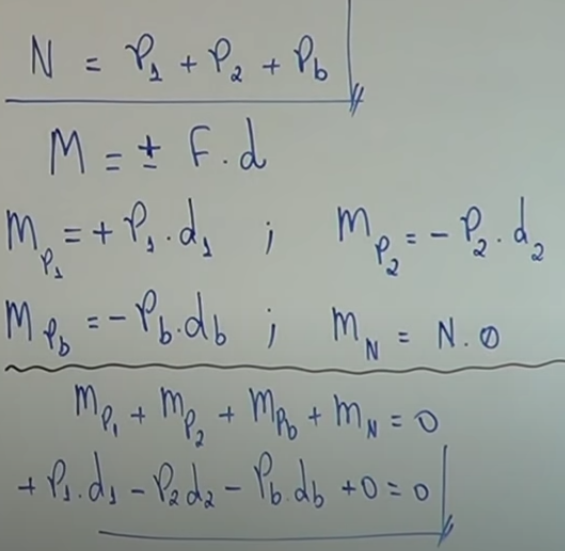 N = P₁ + P₂ + P_b
M = ± F . d
M_P₁ = + P₁ . d₁ ; M_P₂ = - P₂ . d₂
M_P_b = - P_b . d_b ; M_N = N . 0
M_P₁ + M_P₂ + M_P_b + M_N = 0
+ P₁ . d₁ - P₂ d₂ - P_b . d_b + 0 = 0